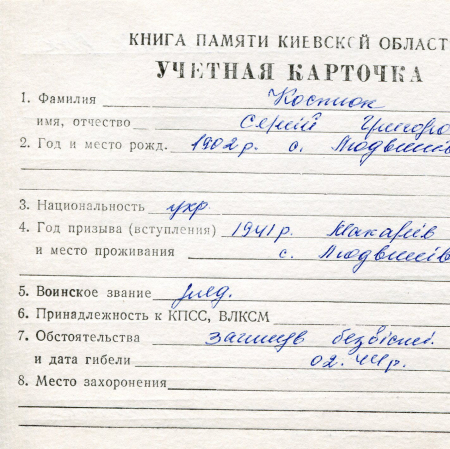 КНИГА ПАМЯТИ КИЕВСКОЙ ОБЛАСТ
УЧЕТНАЯ КАРТОЧКА
1. Фамилия Костюк
имя, отчество Сергій Григоро
2. Год и место рожд. 1902 р. с. Людвинів
3. Национальность укр
4. Год призыва (вступления) 1941 р. Макарів
и место проживания с. Людвинів
5. Воинское звание
6. Принадлежность к КПСС, ВЛКСМ
7. Обстоятельства загинув безвісти
и дата гибели 02.44 р.
8. Место захоронения